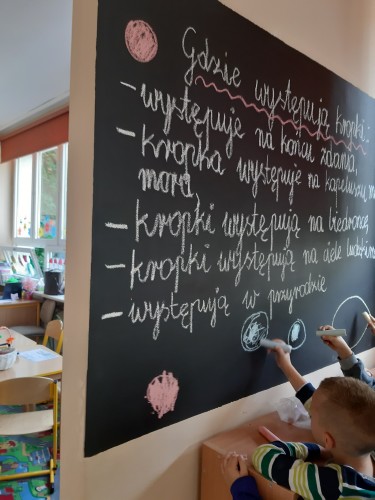 Gdzie występują kropki:
- występuje na końcu zdania,
- kropka występuje na kapeluszu
mora,
- kropki występują na biedronce,
- kropki występują na ciele
- występują w przyrodzie